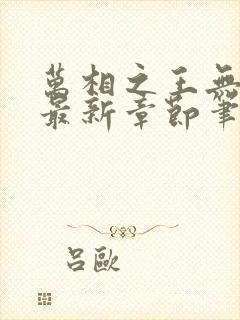 萬相之王無
最新章節筆
呂歐